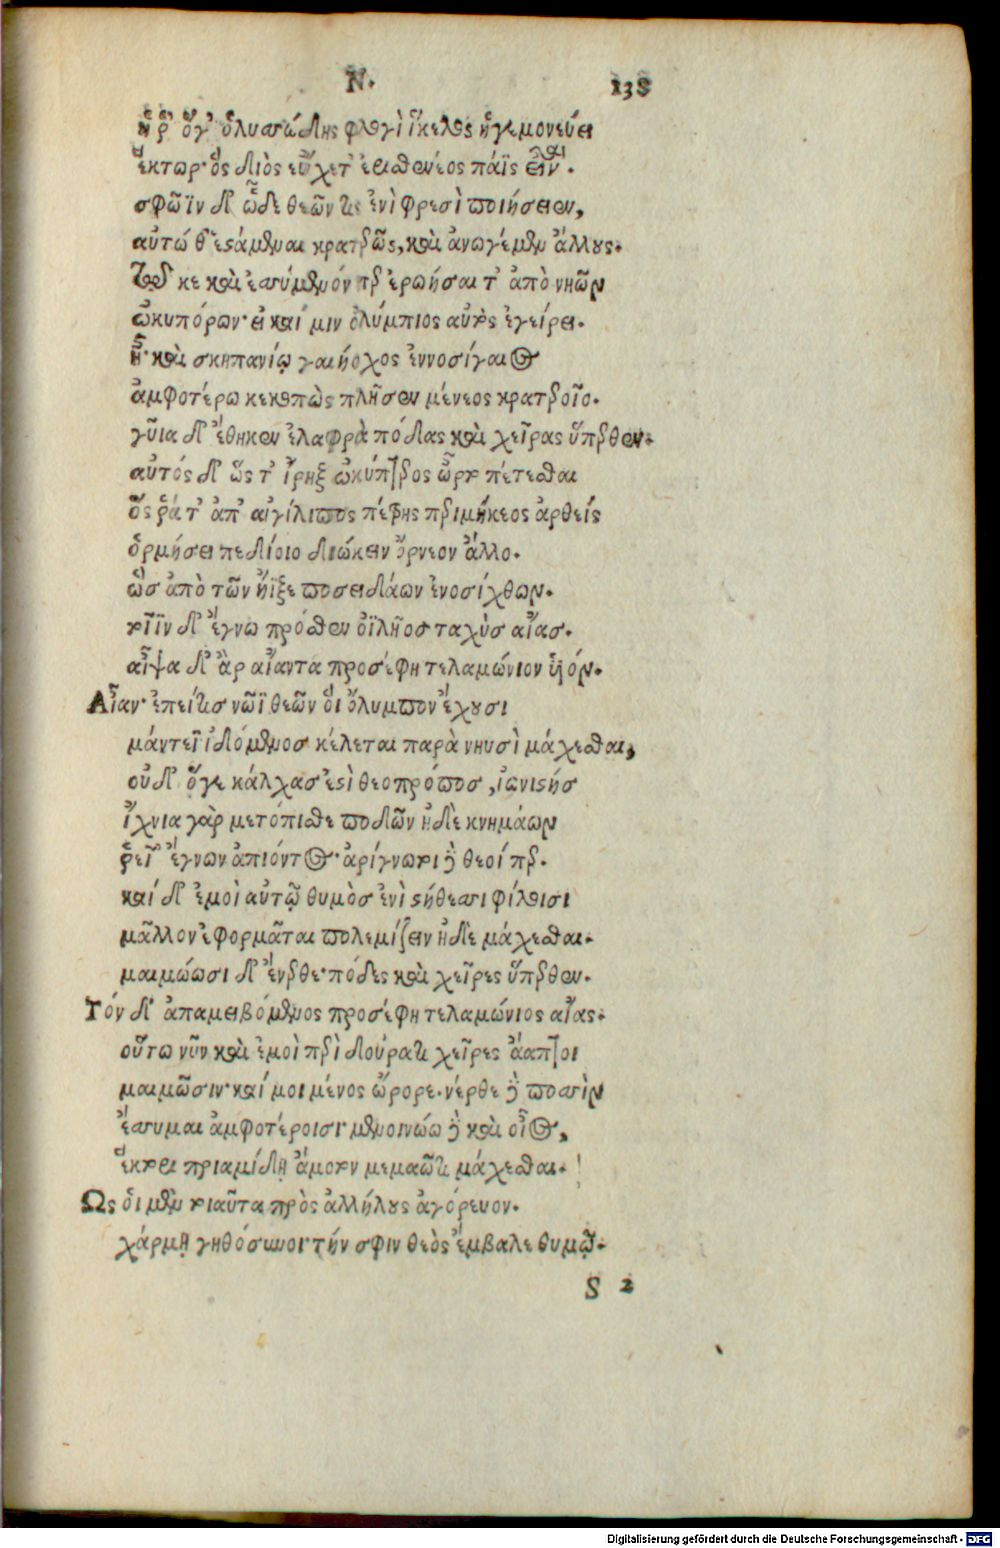 Ν. 138
ᾗ ῥ' ὅγ' ὁ λυσσώδης φλογὶ ἴκελος ἡγεμονεύει
ἕκτωρ· ὃς διὸς εὔχετ' ἐρισθενέος πάϊς εἶναι.
σφῶϊν δ' ὧδε θεῶν τις ἐνὶ φρεσὶ ποιήσειεν,
αὐτώ θ' ἑστάμεναι κρατερῶς, καὶ ἀνωγέμεν ἄλλους.
τῷ κε καὶ ἐσσύμενόν περ ἐρωήσαιτ' ἀπὸ νηῶν
ὠκυπόρων· εἰ καί μιν ὀλύμπιος αὐτὸς ἐγείρει.
ἦ· καὶ σκηπανίῳ γαιήοχος ἐννοσίγαιος
ἀμφοτέρω κεκοπὼς πλῆσεν μένεος κρατεροῖο.
γῦια δ' ἔθηκεν ἐλαφρὰ πόδας καὶ χεῖρας ὕπερθεν.
αὐτός δ' ὥς τ' ἴρηξ ὠκύπτερος ὦρτο πέτεσθαι
ὅς ῥά τ' ἀπ' αἰγίλιπος πέτρης περιμήκεος ἀρθείς
ὁρμήσει πεδίοιο διώκειν ὄρνεον ἄλλο.
ὣσ ἀπὸ τῶν ἤϊξε ποσειδάων ἐνοσίχθων.
τοῖϊν δ' ἔγνω πρόσθεν ὀϊλῆοσ ταχὺσ αἴασ.
αἶψα δ' ἂρ αἴαντα προσέφη τελαμώνιον υἱόν.
Αἶαν· ἐπείτισ νῶϊ θεῶν οἱ ὄλυμπον ἔχουσι
μάντεϊ εἰδόμενοσ κέλεται παρὰ νηυσὶ μάχεσθαι,
οὐδ' ὅγε κάλχασ ἐστὶ θεοπρόποσ, οἰωνιστήσ
ἴχνια γὰρ μετόπισθε ποδῶν ἠδὲ κνημάων
ῥεῖ' ἔγνων ἀπιόντος· ἀρίγνωτοι δὲ θεοί περ.
καί δ' ἐμοὶ αὐτῷ θυμὸσ ἐνὶ στήθεσσι φίλοισι
μᾶλλον ἐφορμᾶται πολεμίζειν ἠδὲ μάχεσθαι.
μαιμώωσι δ' ἔνερθε· πόδες καὶ χεῖρες ὕπερθεν.
Τόν δ' ἀπαμειβόμενος προσέφη τελαμώνιος αἴας.
οὕτω νῦν καὶ ἐμοὶ περὶ δούρατι χεῖρες ἄαπτοι
μαιμῶσιν· καί μοι μένος ὤρορε. νέρθε δὲ ποσσὶν
ἔσσυμαι ἀμφοτέροισι· μενοινώω δὲ καὶ οἶος,
ἕκτορι πριαμίδῃ ἄμοτον μεμαῶτι μάχεσθαι.
Ὣς οἱ μὲν τοιαῦτα πρὸς ἀλλήλους ἀγόρευον.
χάρμῃ γηθόσυνοι· τήν σφιν θεὸς ἔμβαλε θυμῷ.
S 2
Digitalisierung gefördert durch die Deutsche Forschungsgemeinschaft - DFG